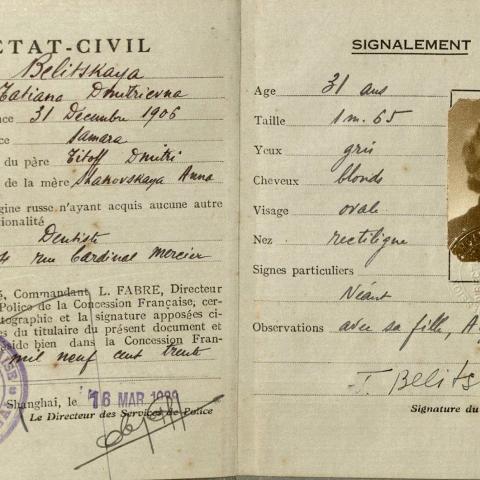 ETAT-CIVIL
Belitskaya
Tatiana Dmitrievna
nce 31 Décembre 1906
ce Samara
du père Titoff Dmitri
de la mère Shahovskaya Anna
gine russe n'ayant acquis aucune autre
ionalité
Dentiste
rue Cardinal Mercier
Commandant L. FABRE, Directeur
Police de la Concession Française, cer-
otographie et la signature apposées ci-
es du titulaire du présent document et
side bien dans la Concession Fran-
mil neuf cent trente
Shanghai, le 16 MAR
Le Directeur des Services de Police
SIGNALEMENT
Age 31 ans
Taille 1m.65
Yeux gris
Cheveux blonds
Visage ovale
Nez rectiligne
Signes particuliers
Néant
Observations avec sa fille, A
T. Belits
Signature du